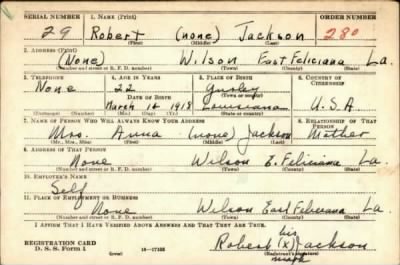 SERIAL NUMBER 1. NAME (Print) ORDER NUMBER
29 Robert (none) Jackson 280
(First) (Middle) (Last)
2. ADDRESS (Print)
(None) Wilson East Feliciana La.
(Number and street or R. F. D. number) (Town) (County) (State)
3. TELEPHONE 4. AGE IN YEARS 5. PLACE OF BIRTH 6. COUNTRY OF CITIZENSHIP
None 22 Gurley
DATE OF BIRTH (Town or county)
March 16 1918 Louisiana U.S.A
(Exchange) (Number) (Mo.) (Day) (Yr.) (State or country)
7. NAME OF PERSON WHO WILL ALWAYS KNOW YOUR ADDRESS 8. RELATIONSHIP OF THAT PERSON
Mrs. Anna (none) Jackson Mother
(Mr., Mrs., Miss) (First) (Middle) (Last)
9. ADDRESS OF THAT PERSON
None Wilson E. Feliciana La.
(Number and street or R. F. D. number) (Town) (County) (State)
10. EMPLOYER'S NAME
Self
11. PLACE OF EMPLOYMENT OR BUSINESS
None Wilson East Feliciana La.
(Number and street or R. F. D. number) (Town) (County) (State)
I AFFIRM THAT I HAVE VERIFIED ABOVE ANSWERS AND THAT THEY ARE TRUE.
his
REGISTRATION CARD Robert (x) Jackson
D. S. S. Form 1 (over) 16—17105 (Registrant's signature)
mark